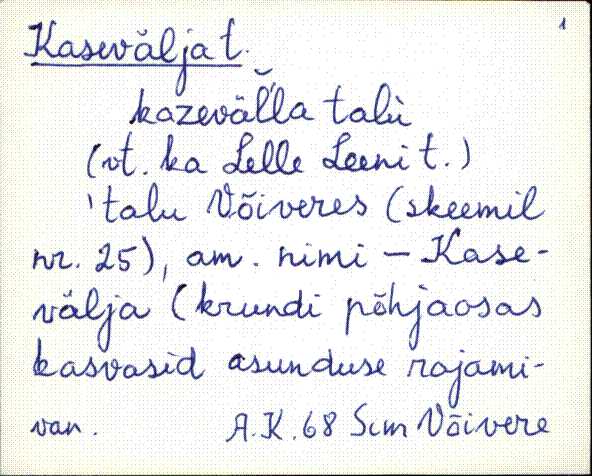 1
Kaseväljat.
kazeväĺĺa talù
(vt. ka Lelle Leeni t.)
'talu Võiveres (skeemil
nr. 25), am. nimi – Kase-
välja (krundi põhjaosas
kasvasid asunduse rajami-
van. A.K.68 Sim Võivere